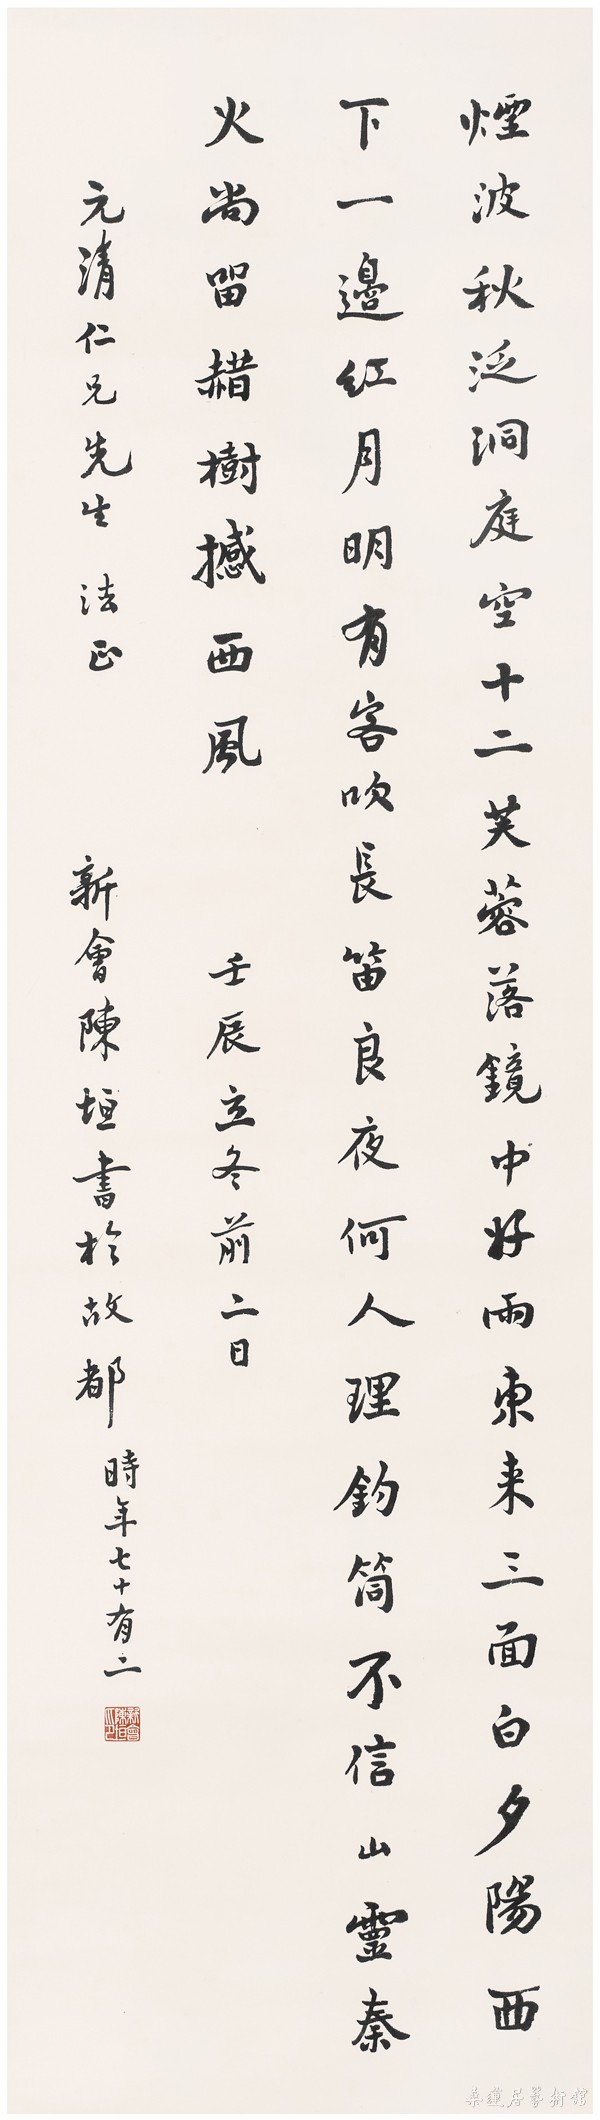 煙波秋泛洞庭空十二芙蓉落鏡中好雨東来三面白夕陽西
下一邊紅月明有客吹長笛良夜何人理釣筒不信山靈秦
火尚留赭樹撼西風
壬辰立冬前二日
元清仁兄先生 法正
新會陳垣書於故都
時年七十有二
新會陳垣